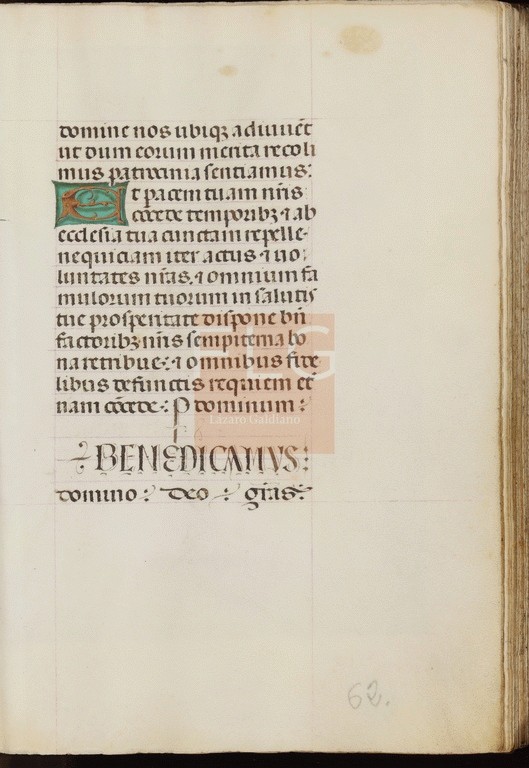 domine nos ubiqꝫ adiuuēt
ut dum eorum merita recoli
mus patrocinia sentiamus:
Et pacem tuam nr̄is
cōcede temporibꝫ ⁊ ab
ecclesia tua cunctam repelle
nequiciam iter actus ⁊ uo
luntates nr̄as. ⁊ omnium fa
mulorum tuorum in salutis
tue prosperitate dispone bn̄
factoribꝫ nr̄is sempiterna bo
na retribue: ⁊ omnibus fide
libus defunctis requiem et̄
nam cōcede: P dominum:
BENEDICAMVS:
domino: deo: gr̄as:
FLG
Lázaro Galdiano
62.